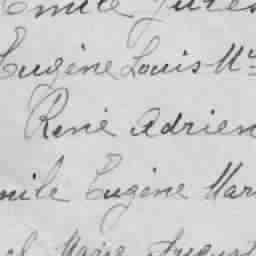 Emile Jules
Eugène Louis M
René Adrien
mile Eugène Mar
Marie August